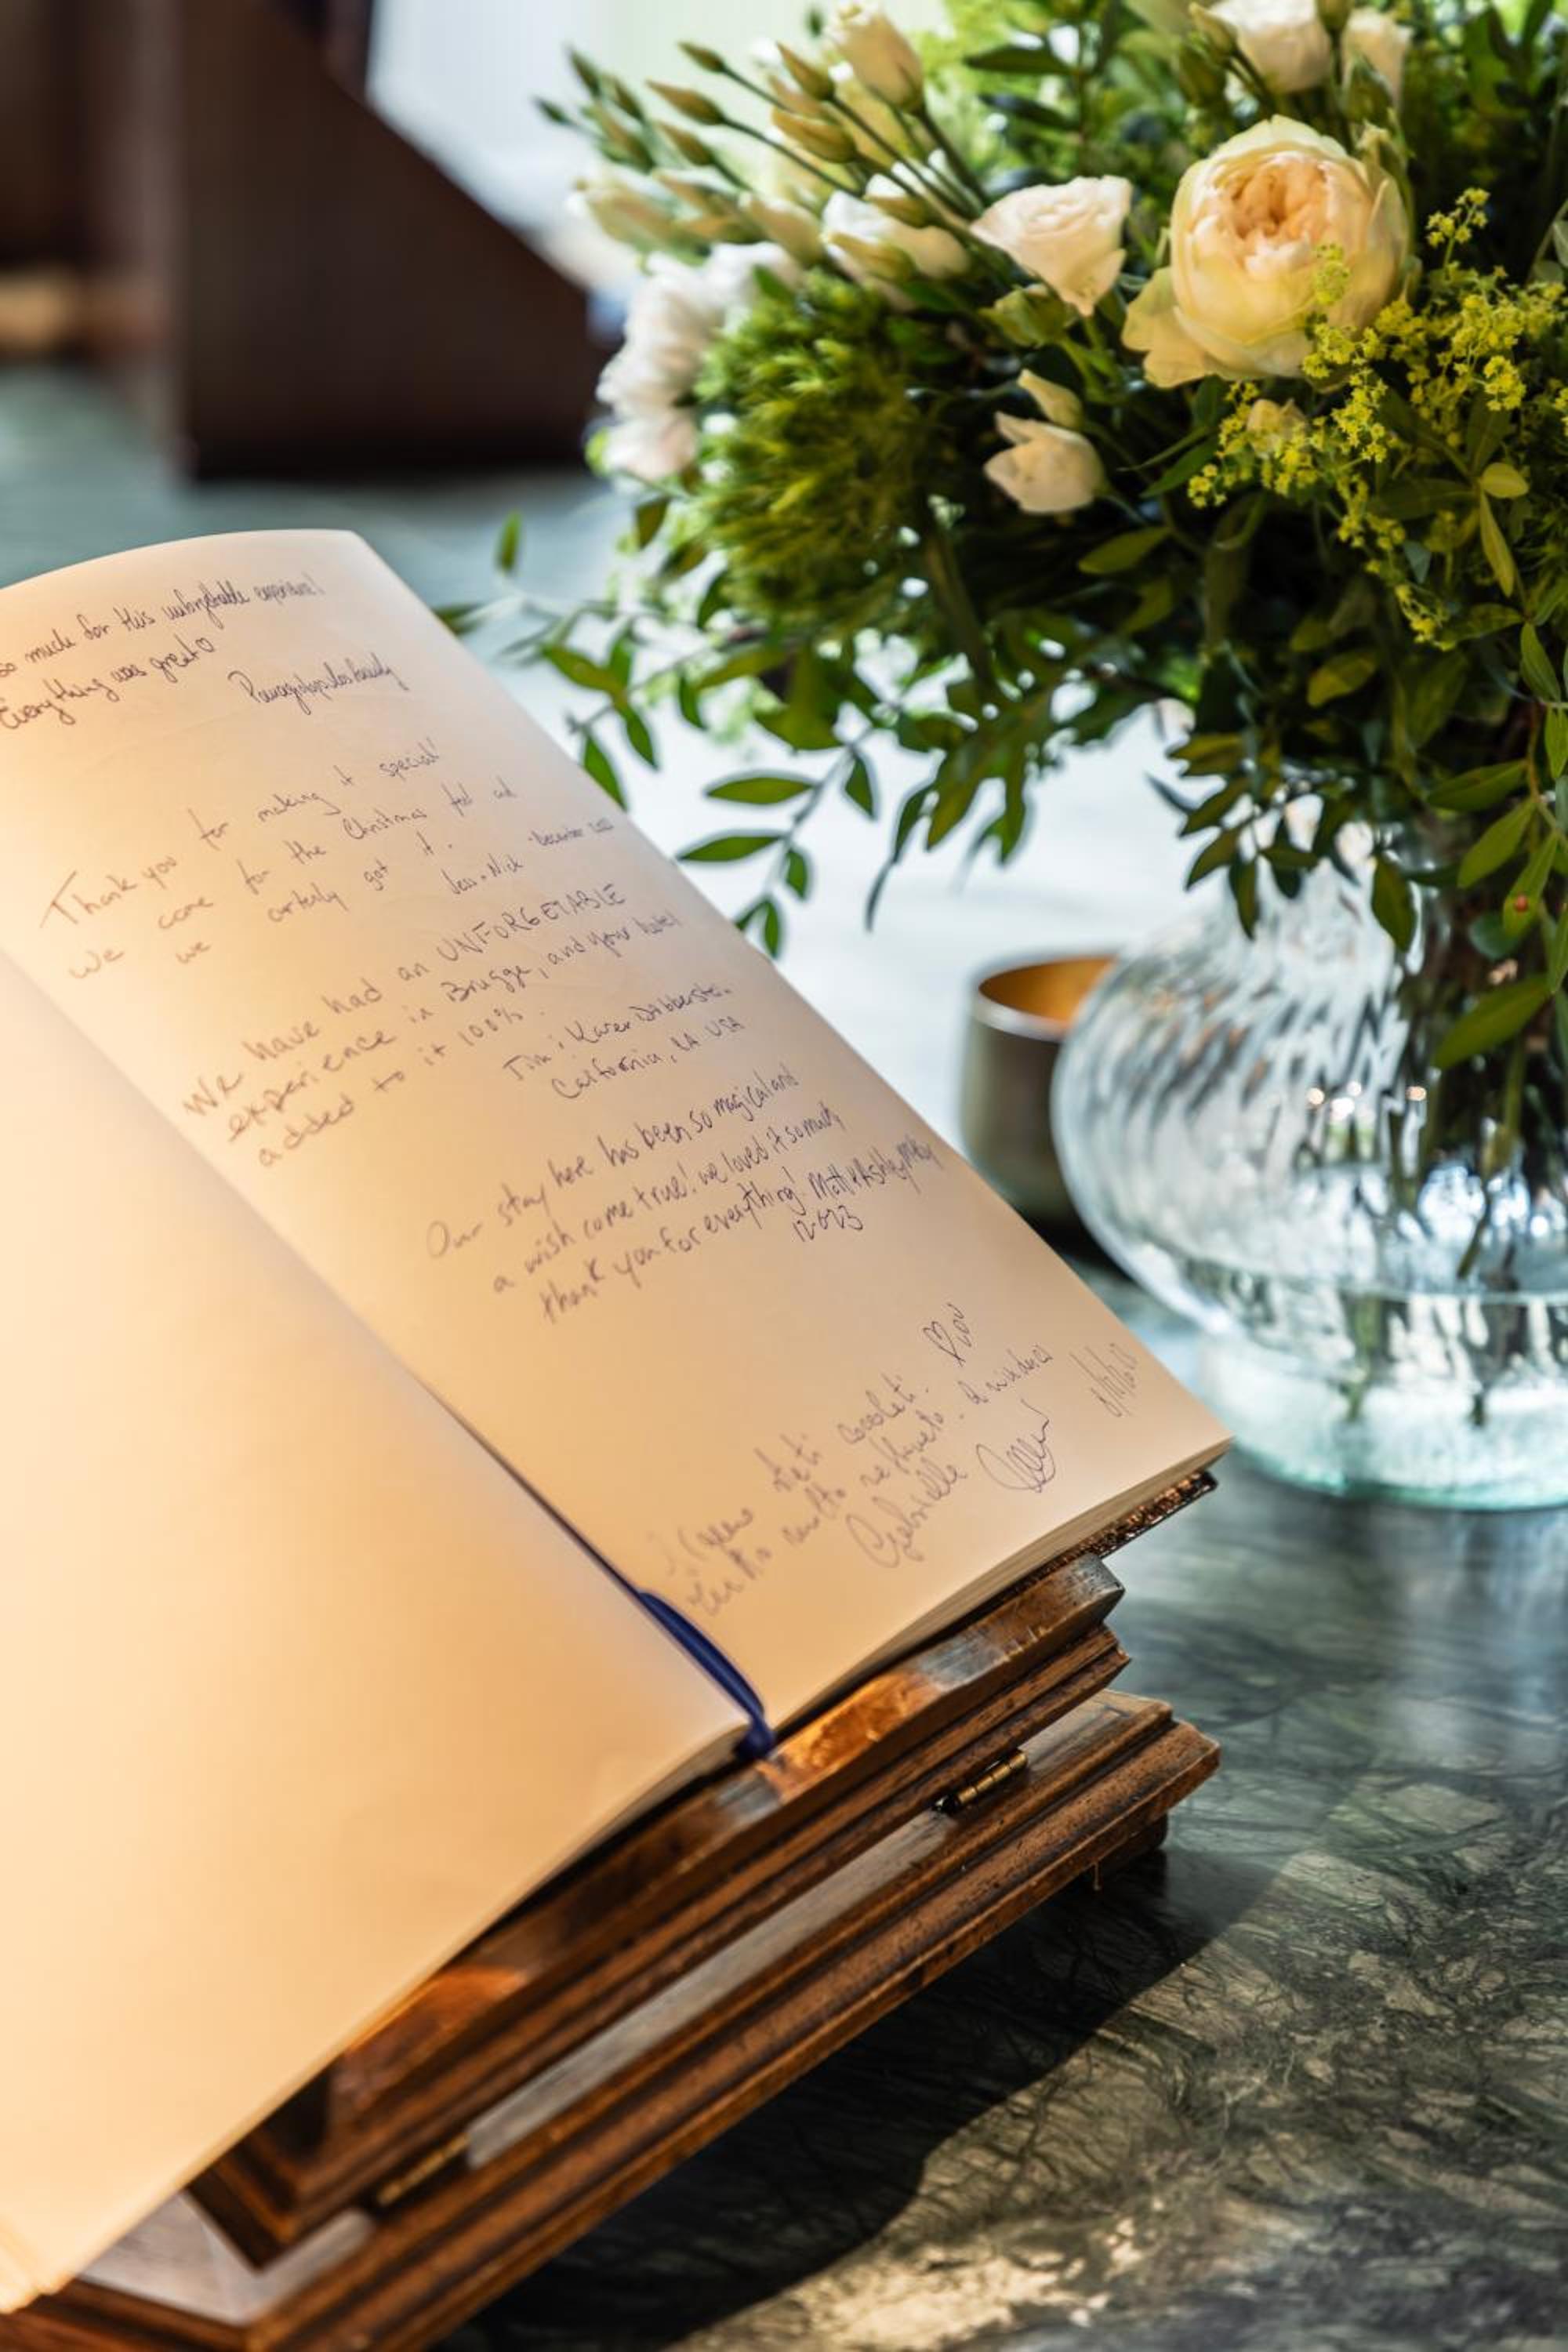 so much for this unforgettable experience!
Everything was great
family
Thank you for making it special!
We came for the Christmas feel and
we certainly got it.
Jess + Nick - December
We have had an UNFORGETABLE
experience in Brugge, and your hotel
added to it 100%.
Tim & Karen
California, LA USA
Our stay here has been so magical and
a wish come true! we loved it so much
thank you for everything! Matt & Ashley
molto
Gabriella